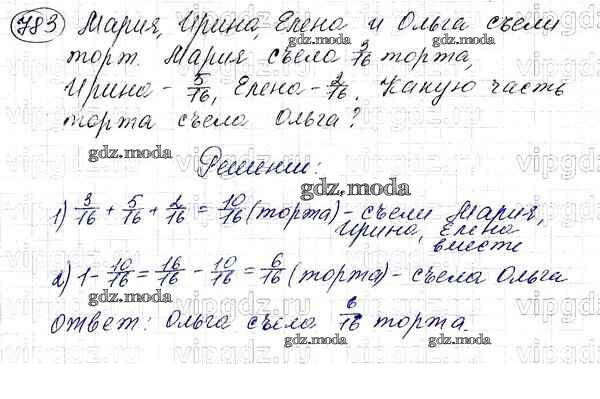 783 Мария, Ирина, Елена и Ольга съели
торт. Мария съела 3/16 торта,
Ирина - 5/16, Елена - 2/16. Какую часть
торта съела Ольга?
Решение:
1) 3/16 + 5/16 + 2/16 = 10/16 (торта) - съели Мария,
Ирина, Елена
вместе
2) 1 - 10/16 = 16/16 - 10/16 = 6/16 (торта) - съела Ольга
Ответ: Ольга съела 6/16 торта.
gdz.moda
gdz.moda
gdz.moda
gdz.moda
gdz.moda
gdz.moda
gdz.moda
gdz.moda
gdz.moda